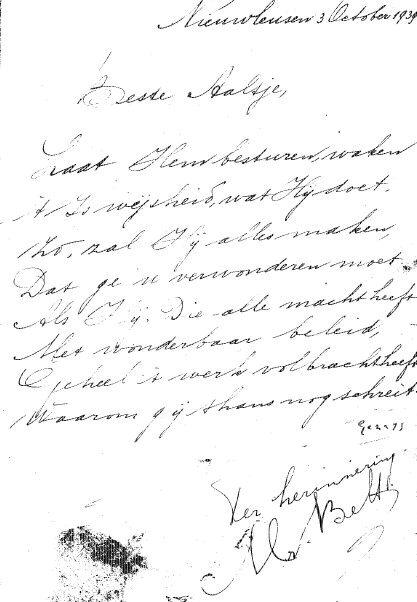 Nieuwleusen 3 October 1939
Beste Aaltje,
Laat Hem besturen, waken
't Is wijsheid, wat Hij doet.
Zo, zal Hij alles maken,
Dat ge u verwonderen moet.
Als Hij. Die alle macht heeft
Met wonderbaar beleid,
Geheel 't werk volbracht heeft
Waarom gij thans nog schreit.
Gez 73
Ter herinnering
Mr. Belt